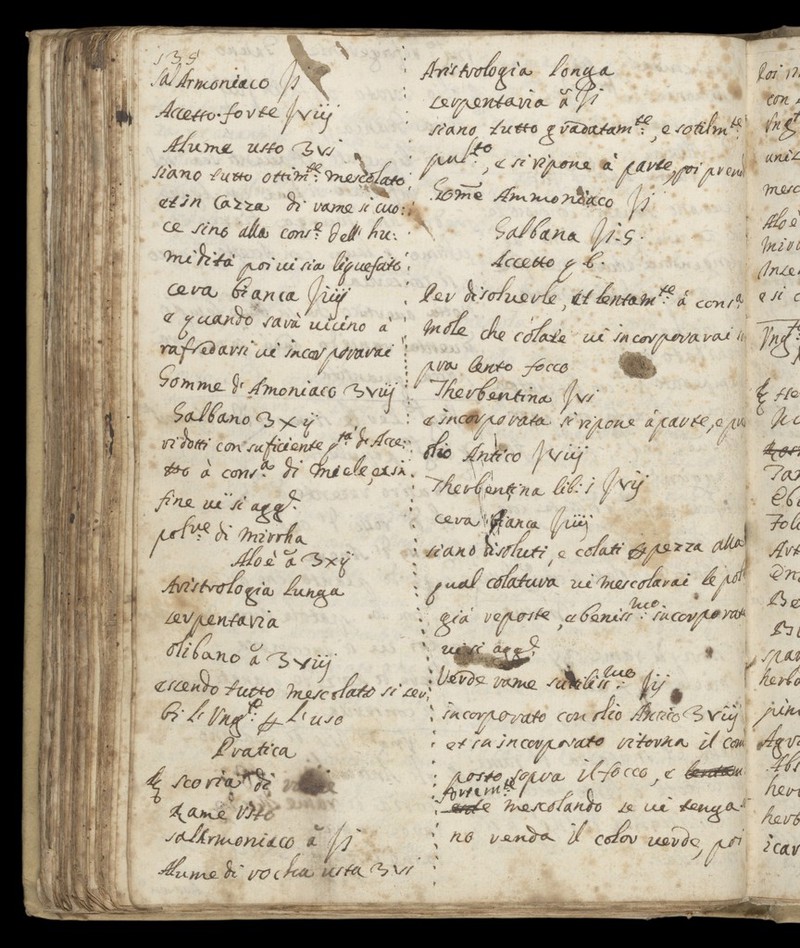 138
Sal Armoniaco ℥i
Accetto forte ℥viij
Alume usto ʒvi
siano tutto ottim.te mescolato
et in Cazza di rame si cuo:
ce sino alla cons.a dell' hu:
midità poi ui sia liquefato
cera bianca ℥iiij
e quando sarà uicino à
rafredarsi ui incorporarai
Gomme di Amoniaco ʒviij
Galbano ʒxij
ridotti con suficiente q.tà di Acce:
tto à cons.a di miele, et in
fine ui si agg.e
polu.e di mirrha
Aloè ā ʒxij
Aristrologia lunga
serpentaria
olibano ā ʒviij
essendo tutto mescolato si ser:
bi l' Ung.to p l' uso
Pratica
℞ scoria di
Rame Usto
salArmoniaco ā ℥i
Alume di rocha usta ʒvi
Aristrologia longa
serpentaria ā ℥i
siano tutto gradatam.te, e sotilm.te
pul.to, e si ripone à parte, poi pren
Gome Ammoniaco ℥i
Galbana ℥i.S.
Accetto q b.
Per disoluerle, et lentam.te à cons.a
mole che colate ui incorporarai
pra lento focco
Therbentina ℥vi
e incorporata si ripone à parte, e
olio Antico ℥viij
Therbentina lib: i ℥vij
cera bianca ℥iiij
siano disoluti, e colati p pezza alla
qual colatura ui mescolarai le pol
già reposte, e beniss.mo incorporat
ui si agg.e
Verde rame sutiliss.mo ℥ij
incorporato con olio Antico ʒviij
et in incorporato ritorna il com
posto sopra il focco, e
fortem.te mescolando se ui tenga
no renda il color uerde, poi